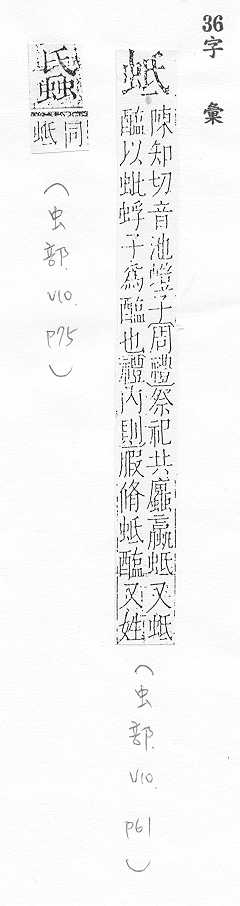 36字彙
蚳
陳知切音池螘子周禮祭祀共蠯蠃蚳又蚳
醢以蚍蜉子爲醢也禮內則腵脩蚳醢又姓
（虫部. V10. P61）
同
蚳
（虫部. V10. P75）